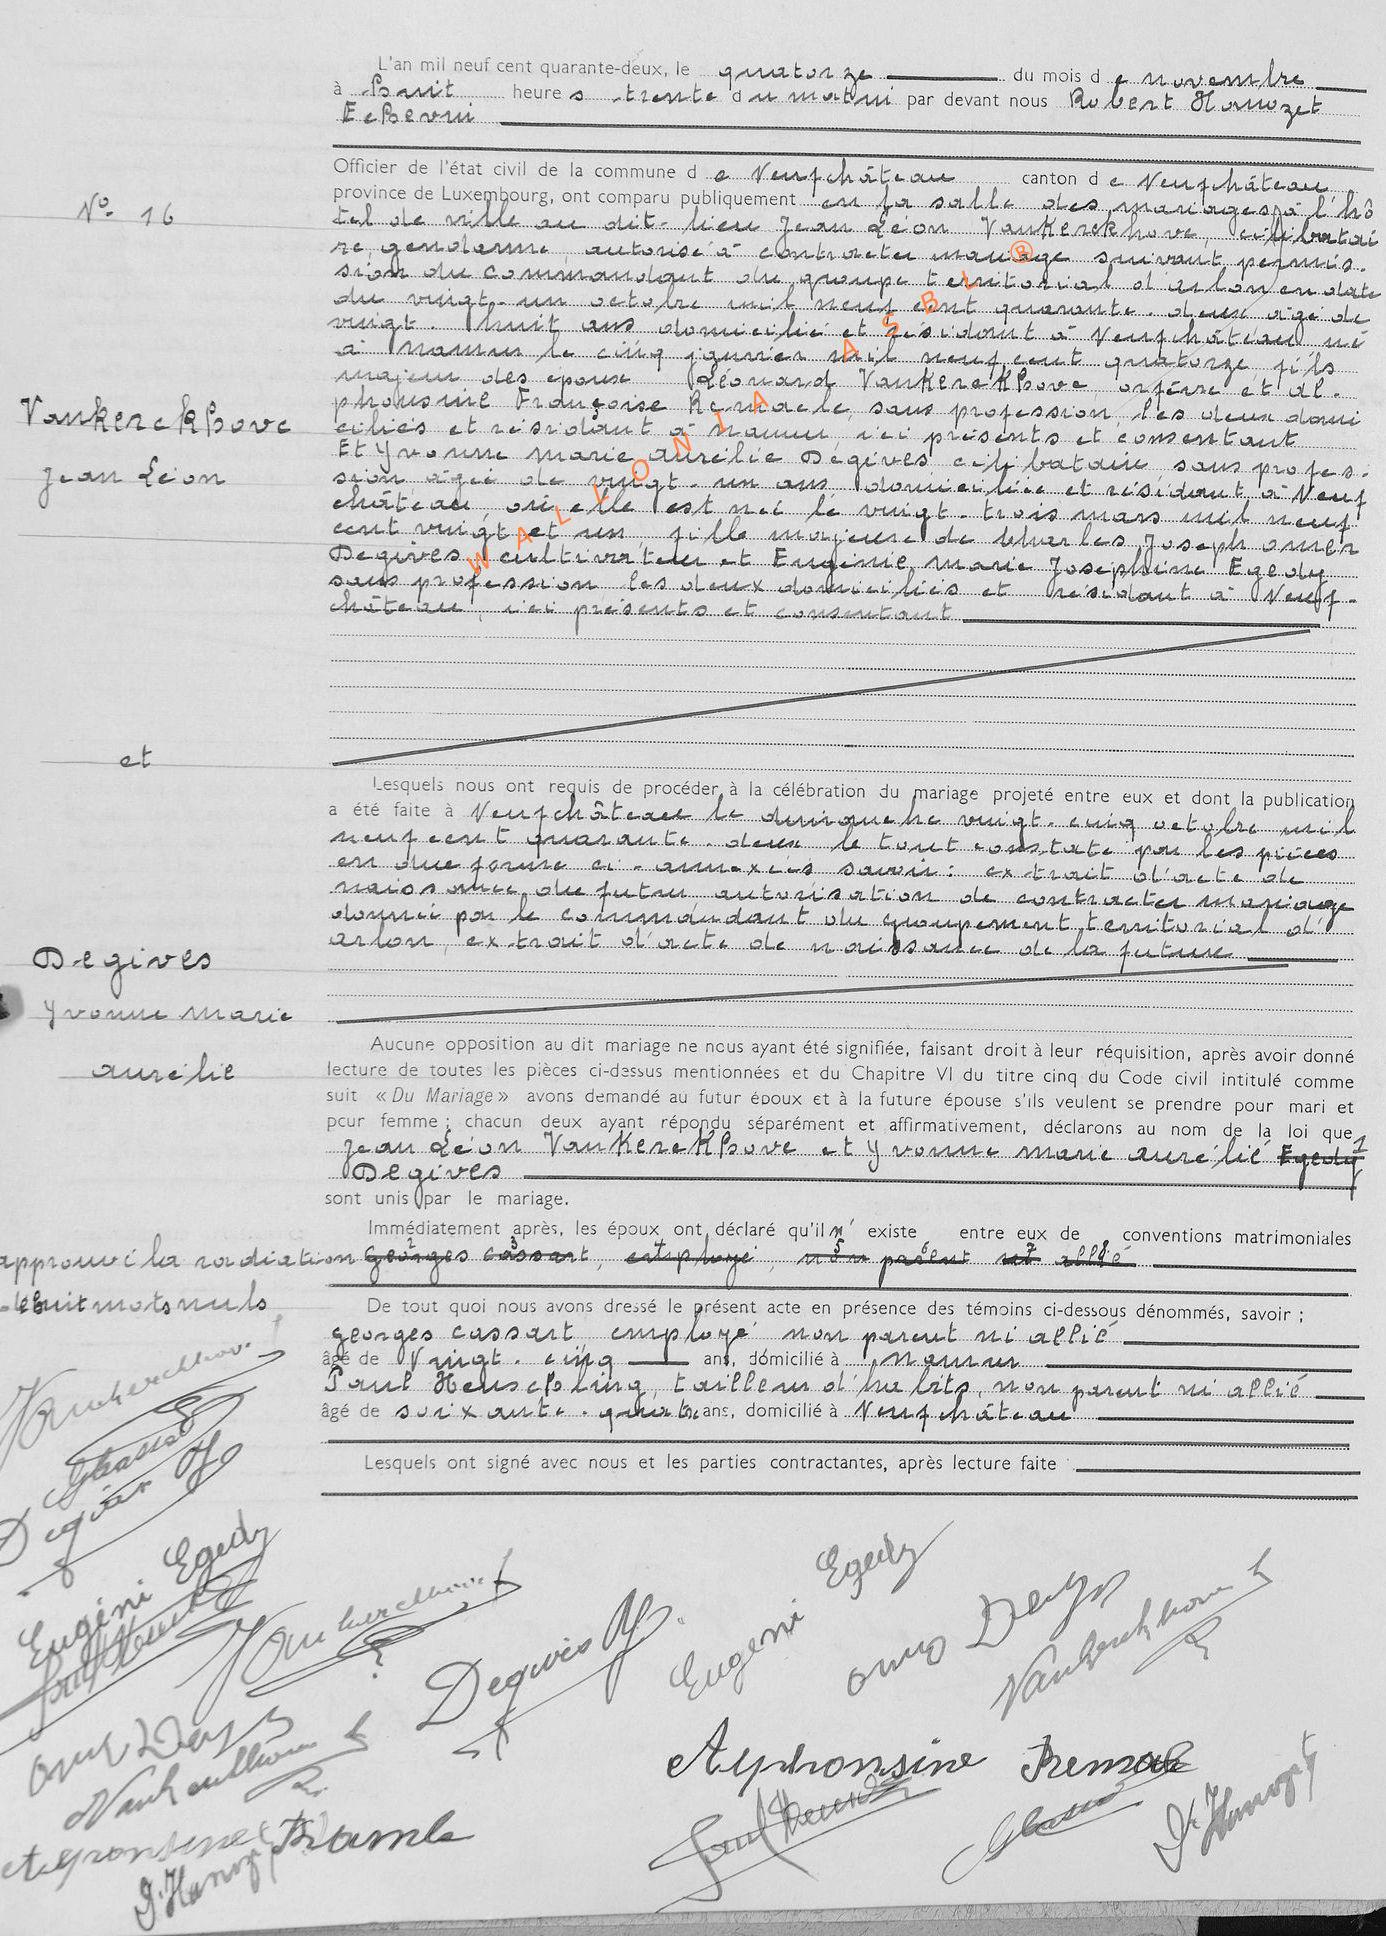 L'an mil neuf cent quarante-deux, le quatorze du mois de novembre
à huit heures trente du matin par devant nous Robert Hanozet
Echevin
Officier de l'état civil de la commune de Neufchâteau canton de Neufchâteau
province de Luxembourg, ont comparu publiquement en la salle des mariages à l'hô
tel de ville au dit-lieu Jean Léon Vankerckhove, célibatai
re gendarme, autorisé à contracter mariage suivant permis-
sion du commandant du groupe territorial d'arlon en date
du vingt-un octobre mil neuf cent quarante-deux âgé de
vingt-huit ans domicilié et résidant à Neufchâteau né
à Namur le cinq janvier mil neuf cent quatorze, fils
majeur des époux Léonard Vankerckhove orfèvre et Al-
phonsine Françoise Remacle, sans profession, les deux domi
ciliés et résidant à Namur, ici présents et consentant
Et Yvonne Marie Aurélie Degives célibataire sans profes-
sion âgée de vingt-un ans domiciliée et résidant à Neuf
château, où elle est née le vingt-trois mars mil neuf
cent vingt et un, fille majeure de Charles Joseph Omer
Degives, cultivateur et Eugénie Marie Josephine Egedy
sans profession les deux domiciliés et résidant à Neuf-
château, ici présents et consentant
Nº 16
Vankerckhove
Jean Léon
et
Degives
Yvonne Marie
Aurélie
WALLONIA ASBL ®
Lesquels nous ont requis de procéder à la célébration du mariage projeté entre eux et dont la publication
a été faite à Neufchâteau le dimanche vingt-cinq octobre mil
neuf cent quarante-deux le tout constaté par les pièces
en due forme ci-annexées savoir: extrait d'acte de
naissance du futur autorisation de contracter mariage
donnée par le commandant du groupement territorial d'
arlon, extrait d'acte de naissance de la future
Aucune opposition au dit mariage ne nous ayant été signifiée, faisant droit à leur réquisition, après avoir donné
lecture de toutes les pièces ci-dessus mentionnées et du Chapitre VI du titre cinq du Code civil intitulé comme
suit « Du Mariage » avons demandé au futur époux et à la future épouse s'ils veulent se prendre pour mari et
pour femme ; chacun deux ayant répondu séparément et affirmativement, déclarons au nom de la loi que
Jean Léon Vankerckhove et Yvonne Marie Aurélie Egedy 1
Degives
sont unis par le mariage.
Immédiatement après, les époux ont déclaré qu'il n' existe entre eux de conventions matrimoniales
Georges Cassart, employé, non parent ni allié
approuvé la radiation
de huit mots nuls
De tout quoi nous avons dressé le présent acte en présence des témoins ci-dessous dénommés, savoir ;
Georges Cassart employé non parent ni allié
âgé de Vingt-cinq ans, domicilié à Namur
Paul Heuschling, tailleur d'habits, non parent ni allié
âgé de soixante-quatre ans, domicilié à Neufchâteau
Lesquels ont signé avec nous et les parties contractantes, après lecture faite
Vankerckhove
GCassart
Degives Y
Eugéni Egedy
Vankerckhove
Degives Y
Eugéni Egedy
Vankerckhove
Alphonsine Remacle
GCassart
R. Hanozet